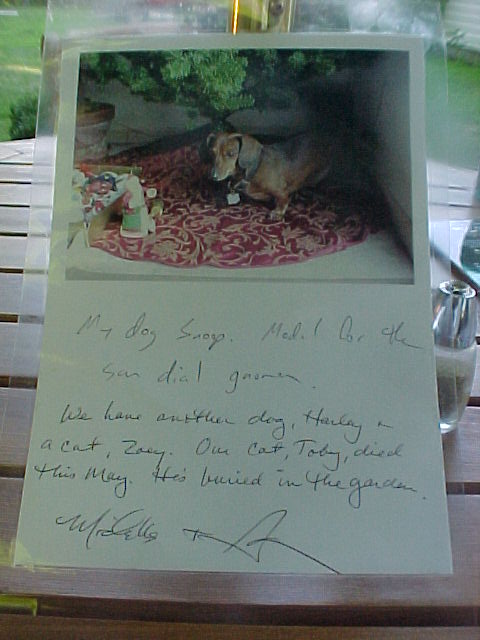 My dog Snoop. Model for the
sun dial gnomen.
We have another dog, Harley &
a cat, Zoey. Our cat, Toby, died
this May. He's buried in the garden.
Michelle +